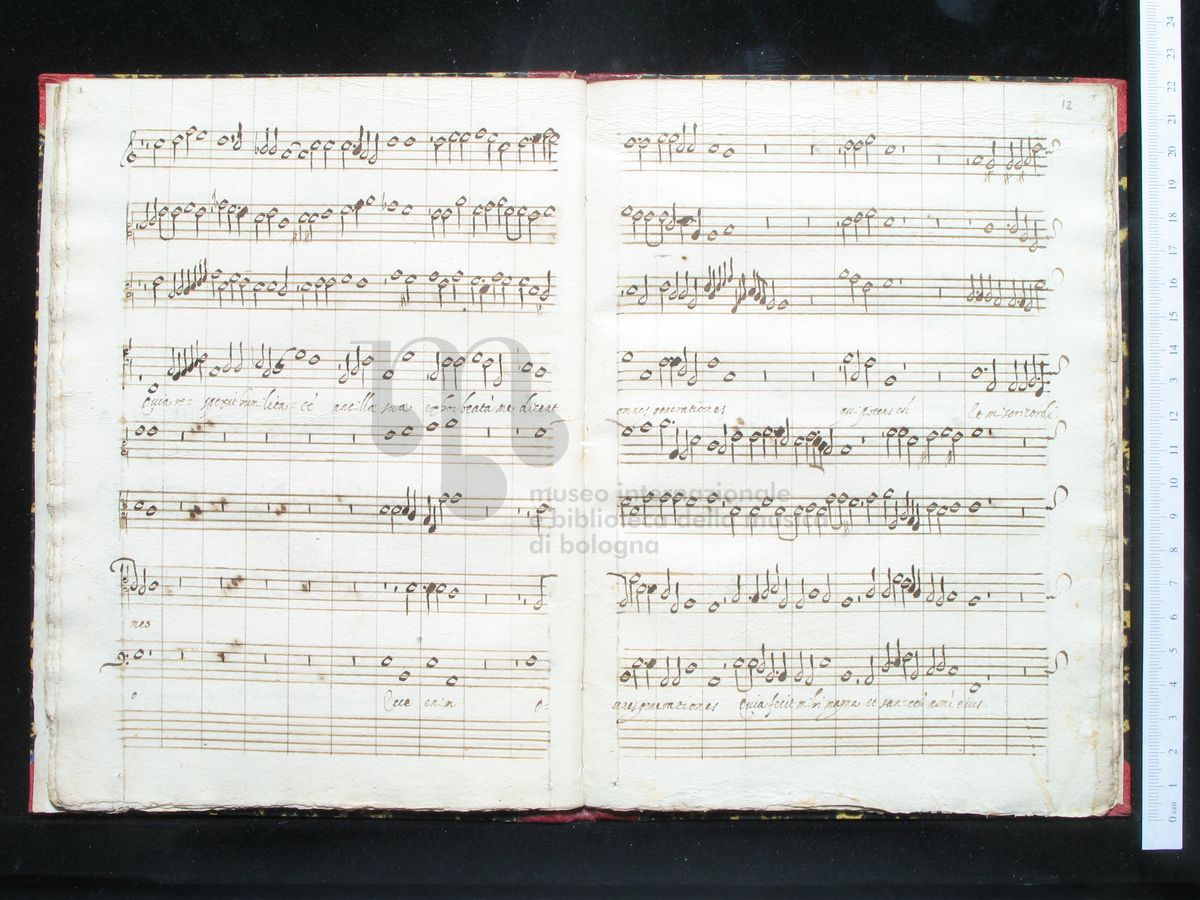 12
Quia re= spexit humilita=te ancilla sua ex hoc beata me dicent
omnes generationes qui potens est et misericordi
museo internazionale
e biblioteca della musica
di bologna
mes
o Ecce enim o=
mnes generationes Quia fecit mihi magna et sanctu nome eius.
24
23
22
21
20
19
18
17
16
15
14
13
12
11
10
9
8
7
6
5
4
3
2
1
0 cm